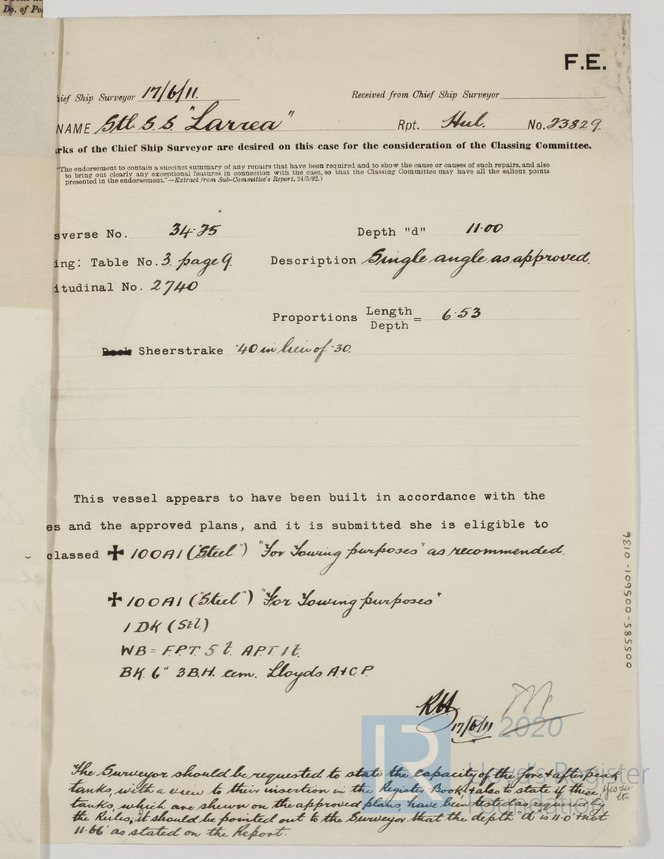 Do. of Po
F.E.
hief Ship Surveyor 17/6/11. Received from Chief Ship Surveyor
NAME Stl. S.S. "Larrea" Rpt. Hul. No. 23829
rks of the Chief Ship Surveyor are desired on this case for the consideration of the Classing Committee.
"The endorsement to contain a succinct summary of any repairs that have been required and to show the cause or causes of such repairs, and also
to bring out clearly any exceptional features in connection with the case, so that the Classing Committee may have all the salient points
presented in the endorsement."—Extract from Sub-Committee's Report, 24/5/92.)
sverse No. 34.25 Depth "d" 11.00
ing: Table No. 3 page 9. Description Single angle as approved.
itudinal No. 2740
Proportions Length/Depth = 6.53
Deck Sheerstrake .40 in lieu of .30.
This vessel appears to have been built in accordance with the
es and the approved plans, and it is submitted she is eligible to
classed ✠ 100A1 ("Steel") "For Towing purposes" as recommended.
✠ 100A1 ("Steel") "For Towing purposes"
1 DK (Stl)
WB = F.P.T 5 t. A.P.T 1 t.
BK. 6" 3 B.H. cem. Lloyds A & C.P.
17/6/11
© 2020
Lloyd's Register
Foundation
The Surveyor should be requested to state the capacity of the fore & after peak
tanks, with a view to their insertion in the Register Book & also to state if these
tanks, which are shewn on the approved plans, have been tested as required by
the Rules, it should be pointed out to the Surveyor that the depth "d" is 11.0 & not
11.66 as stated on the Report.
9310-109500-585500